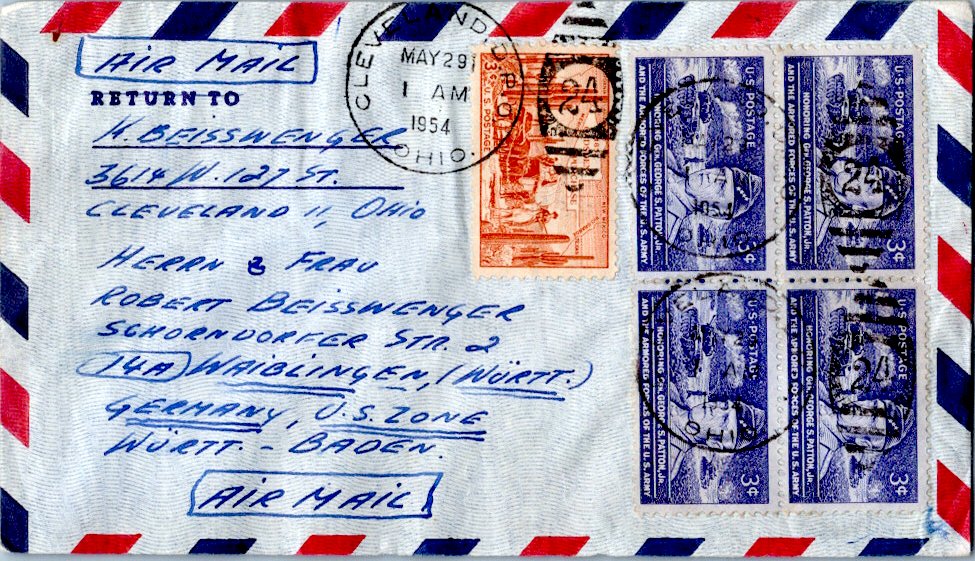 AIR MAIL
RETURN TO
K. BEISSWENGER
3614 W. 127 ST.
CLEVELAND 11, OHIO
HERRN & FRAU
ROBERT BEISSWENGER
SCHORNDORFER STR. 2
14A WAIBLINGEN, (WÜRTT.)
GERMANY, U.S. ZONE
WÜRTT. - BADEN.
AIR MAIL
CLEVELAND
MAY 29
1 AM
1954
OHIO.
24
3¢ U.S. POSTAGE
U.S. POSTAGE
HONORING GEN. GEORGE S. PATTON, JR.
AND THE ARMORED FORCES OF THE U.S. ARMY
U.S. POSTAGE
HONORING GEN. GEORGE S. PATTON, JR.
AND THE ARMORED FORCES OF THE U.S. ARMY
3¢
24
U.S. POSTAGE
HONORING GEN. GEORGE S. PATTON, JR.
AND THE ARMORED FORCES OF THE U.S. ARMY
OHIO
U.S. POSTAGE
HONORING GEN. GEORGE S. PATTON, JR.
AND THE ARMORED FORCES OF THE U.S. ARMY
3¢
24